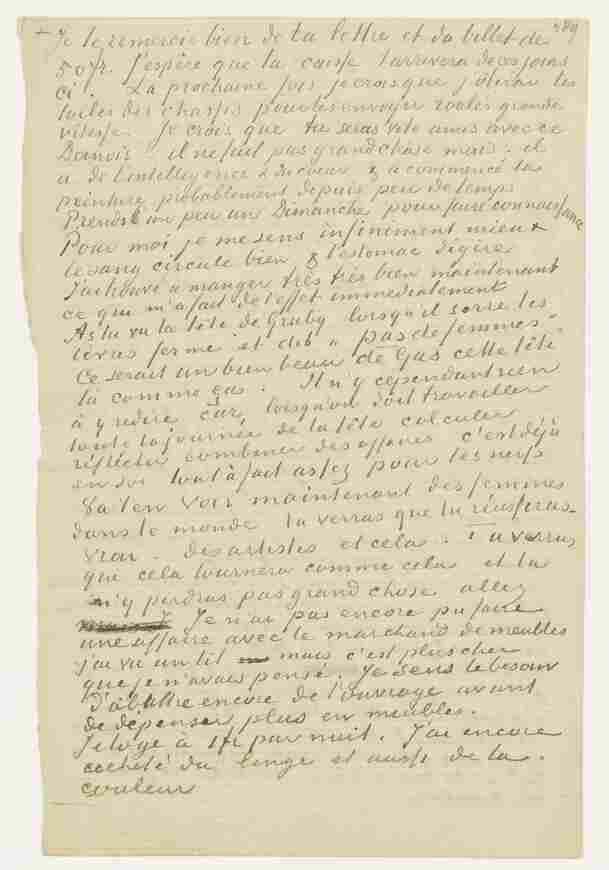 Je te remercie bien de ta lettre et du billet de 489
50 fr. J'espère que la caisse t'arrivera de ces jours
ci. La prochaine fois je crois que j'ôterai les
toiles des chassis pour les envoyer roulés grande
vitesse. Je crois que tu seras vite amis avec ce
Danois. il ne fait pas grand chose mais; il
a de l'intelligence & du coeur & a commencé la
peinture probablement depuis peu de temps.
Prends le un peu un Dimanche pour faire connaissance
Pour moi je me sens infiniment mieux
le sang circule bien & l'estomac digère
J'ai trouvé à manger très très bien maintenant
ce qui m'a fait de l'effet immédiatement
As tu vu la tête de Gruby lorsqu'il serre les
lèvres ferme et dit „ pas de femmes.”
Ce serait un bien beau de Gas cette tête
là comme ças. Il n'y cependant rien
à y redire car, lorsqu'on doit travailler
toute la journée de la tête calculer
réflechir combiner des affaires c'est déjà
en soi tout à fait assez pour les nerfs
Va t'en voir maintenant des femmes
dans le monde tu verras que tu réussiras –
vrai – des artistes et cela. Tu verras
que cela tournera comme cela et tu
n'y perdras pas grand chose allez
Je n'ai pas encore pu faire
une affaire avec le marchand de meubles
j'ai vu un lit mais c'est plus cher
que je n'avais pensé. Je sens le besoin
d'abattre encore de l'ouvrage avant
de depenser plus en meubles.
Je loge à 1 fr par nuit. J'ai encore
acheté du linge et aussi de la.
couleur